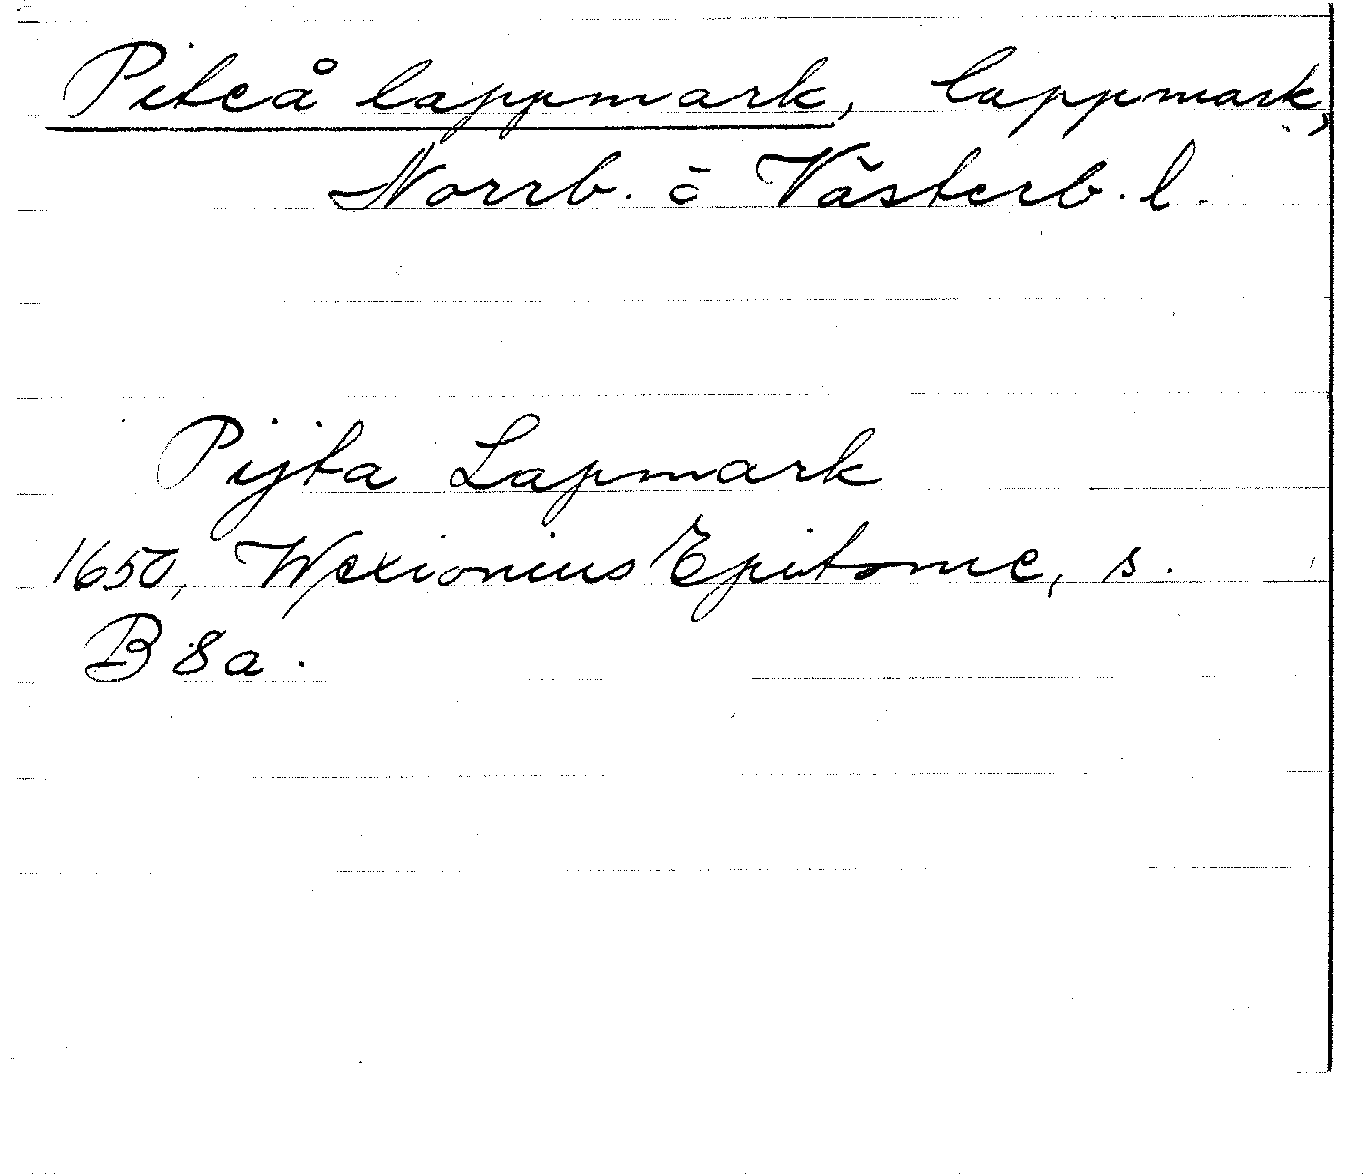 Piteå lappmark, lappmark,
Norrb. o Västerb. l.
Pijta Lapmark
1650, Wexionius Epitome, s.
B 8a.